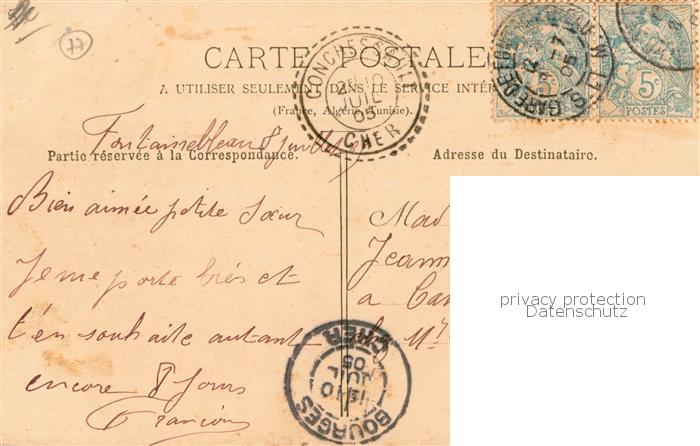 77
CARTE POSTALE
A UTILISER SEULEMENT DANS LE SERVICE INTÉR
(France, Algérie, Tunisie).
CHER
JUIL
05
5c
POSTES
Fontainebleau 8 juillet
Partie réservée à la Correspondance.
Adresse du Destinataire.
Bien aimée petite sœur
Je me porte très et
t'en souhaite autant
encore 8 jours
Mad
Jeann
a Can
privacy protection
Datenschutz
BOURGES
CHER
10
JUIL
05